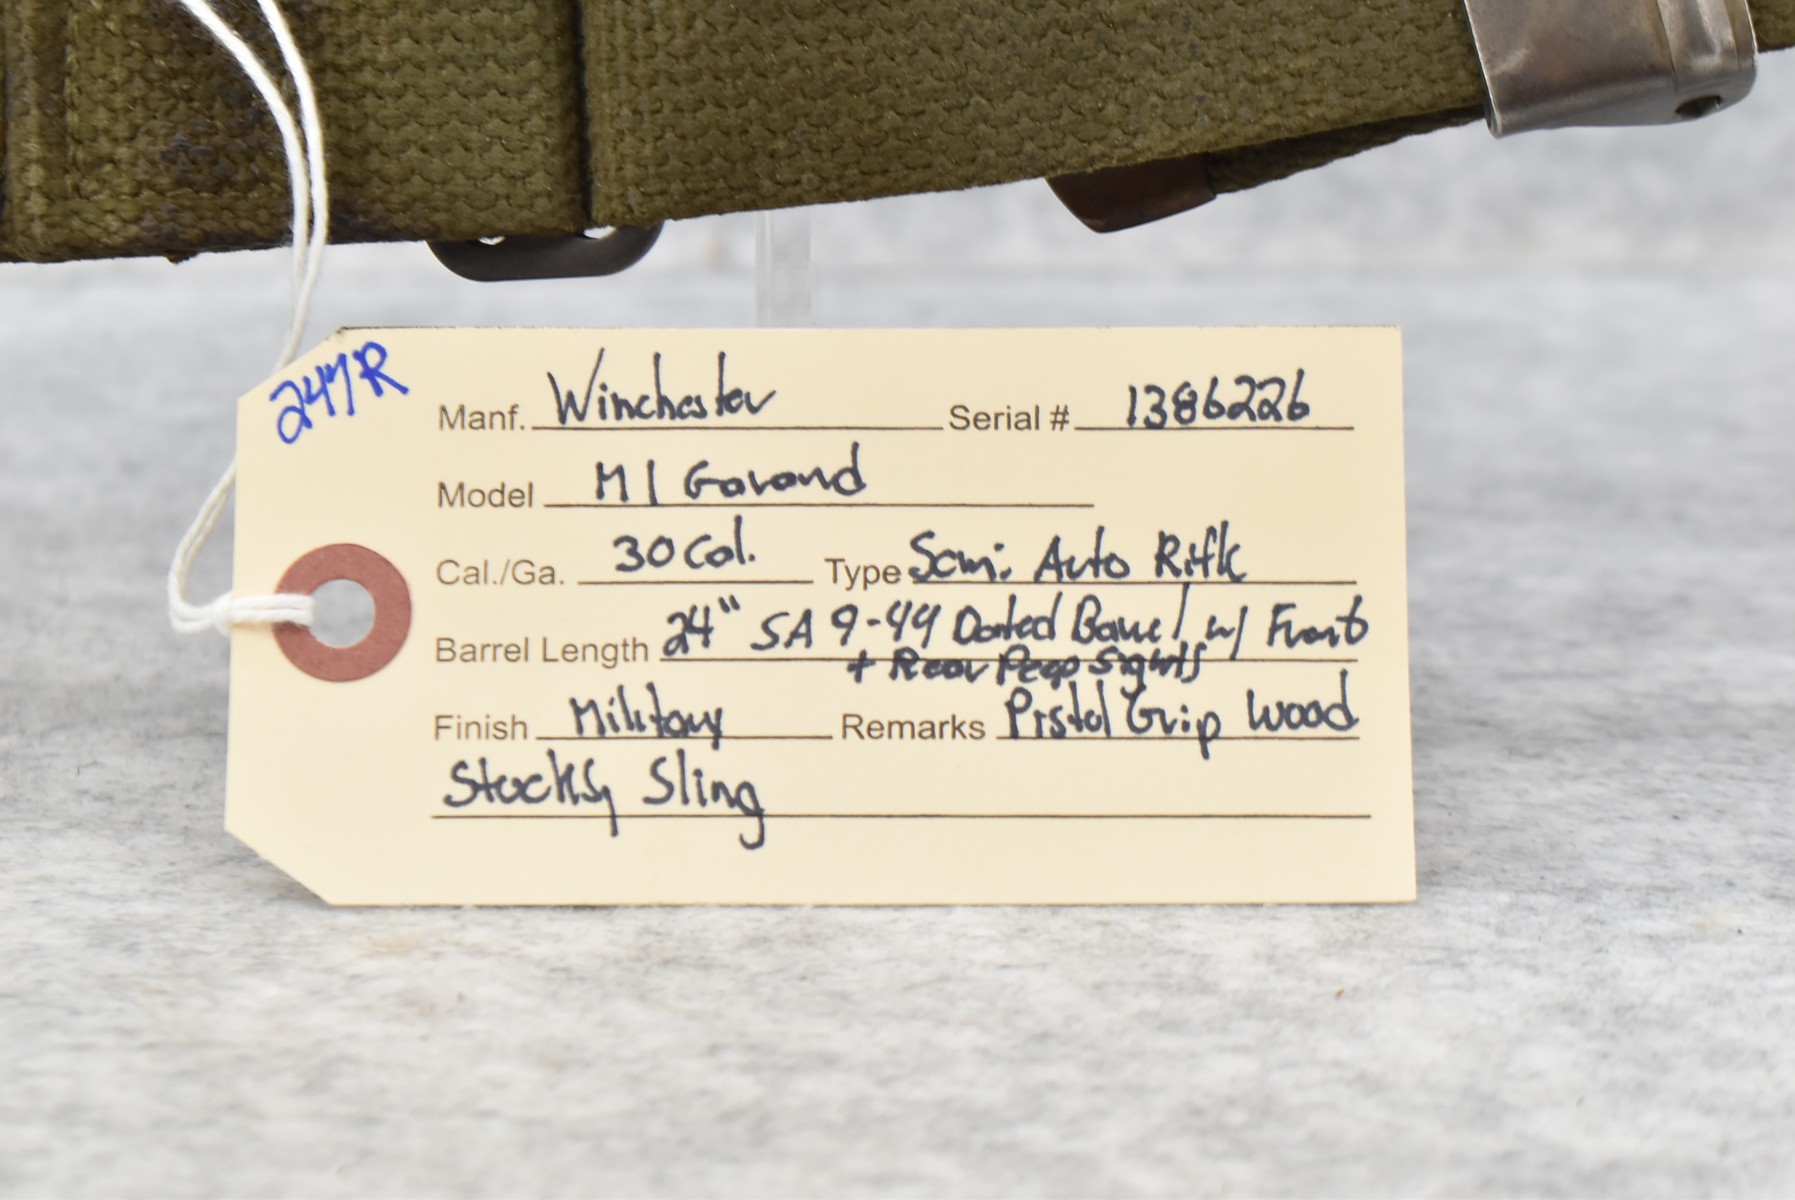 247R
Manf. Winchester Serial # 1386226
Model M1 Garand
Cal./Ga. 30 Cal. Type Semi Auto Rifle
Barrel Length 24" SA 9-44 Dated Barrel w/ Front
+ Rear Peep Sights
Finish Military Remarks Pistol Grip Wood
Stocks, Sling